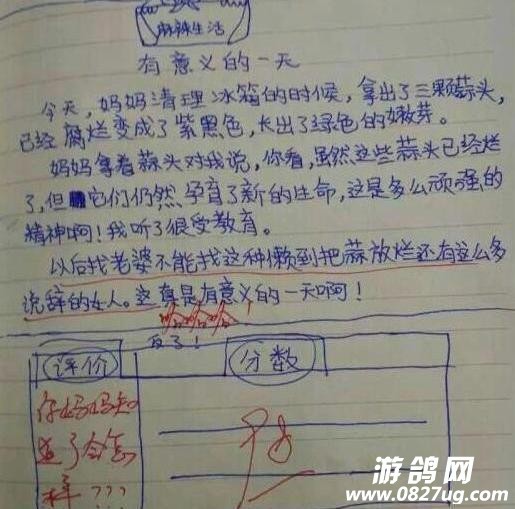 麻辣生活
有意义的一天
今天，妈妈清理冰箱的时候，拿出了三颗蒜头，
已经腐烂变成了紫黑色，长出了绿色的嫩芽。
妈妈拿着蒜头对我说，你看，虽然这些蒜头已经烂
了，但它们仍然孕育了新的生命，这是多么顽强的
精神啊！我听了很受教育。
以后找老婆不能找这种懒到把蒜放烂还有这么多
说辞的女人。这真是有意义的一天啊！
哈哈哈
评价
分数
你妈妈知
道了会怎
样???
游鸽网
www.0827ug.com